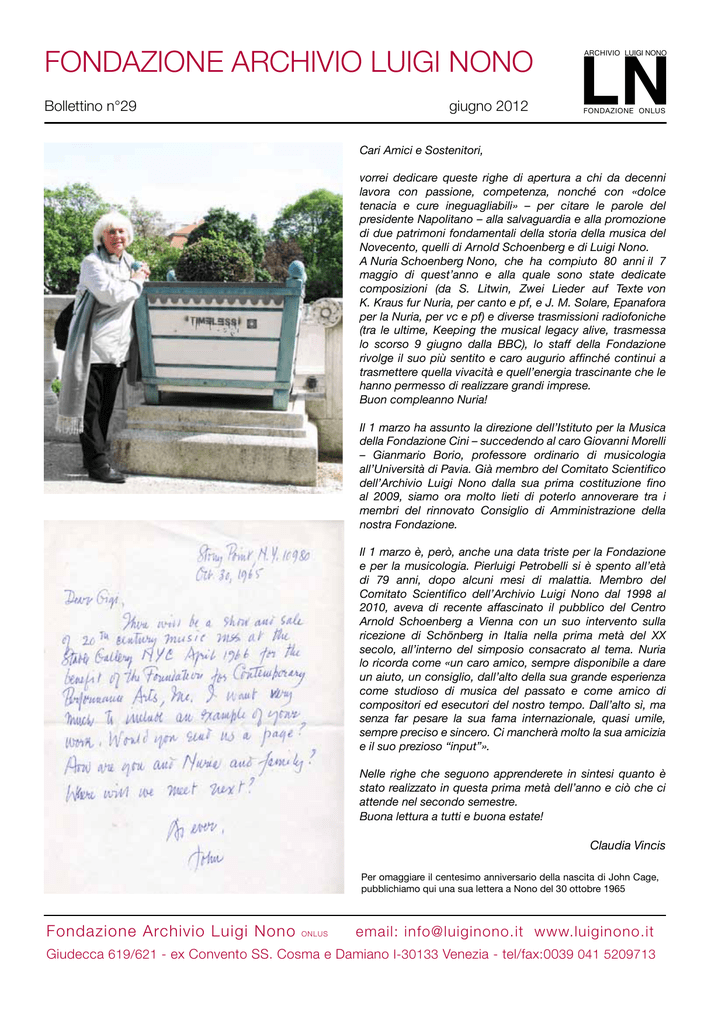 FONDAZIONE ARCHIVIO LUIGI NONO
Bollettino n°29 giugno 2012
ARCHIVIO LUIGI NONO
LN
FONDAZIONE ONLUS
TIMELESS!
Stony Point, N.Y. 10980
Oct. 30, 1965
Dear Gigi,
There will be a show and sale
of 20TH century music mss at the
Stable Gallery NYC April 1966 for the
benefit of the Foundation for Contemporary
Performance Arts, Inc. I want very
much to include an example of your
work. Would you send us a page?
How are you and Nuria and family?
Where will we meet next?
As ever,
John
Cari Amici e Sostenitori,
vorrei dedicare queste righe di apertura a chi da decenni
lavora con passione, competenza, nonché con «dolce
tenacia e cure ineguagliabili» – per citare le parole del
presidente Napolitano – alla salvaguardia e alla promozione
di due patrimoni fondamentali della storia della musica del
Novecento, quelli di Arnold Schoenberg e di Luigi Nono.
A Nuria Schoenberg Nono, che ha compiuto 80 anni il 7
maggio di quest'anno e alla quale sono state dedicate
composizioni (da S. Litwin, Zwei Lieder auf Texte von
K. Kraus fur Nuria, per canto e pf, e J. M. Solare, Epanafora
per la Nuria, per vc e pf) e diverse trasmissioni radiofoniche
(tra le ultime, Keeping the musical legacy alive, trasmessa
lo scorso 9 giugno dalla BBC), lo staff della Fondazione
rivolge il suo più sentito e caro augurio affinché continui a
trasmettere quella vivacità e quell'energia trascinante che le
hanno permesso di realizzare grandi imprese.
Buon compleanno Nuria!
Il 1 marzo ha assunto la direzione dell'Istituto per la Musica
della Fondazione Cini – succedendo al caro Giovanni Morelli
– Gianmario Borio, professore ordinario di musicologia
all'Università di Pavia. Già membro del Comitato Scientifico
dell'Archivio Luigi Nono dalla sua prima costituzione fino
al 2009, siamo ora molto lieti di poterlo annoverare tra i
membri del rinnovato Consiglio di Amministrazione della
nostra Fondazione.
Il 1 marzo è, però, anche una data triste per la Fondazione
e per la musicologia. Pierluigi Petrobelli si è spento all'età
di 79 anni, dopo alcuni mesi di malattia. Membro del
Comitato Scientifico dell'Archivio Luigi Nono dal 1998 al
2010, aveva di recente affascinato il pubblico del Centro
Arnold Schoenberg a Vienna con un suo intervento sulla
ricezione di Schönberg in Italia nella prima metà del XX
secolo, all'interno del simposio consacrato al tema. Nuria
lo ricorda come «un caro amico, sempre disponibile a dare
un aiuto, un consiglio, dall'alto della sua grande esperienza
come studioso di musica del passato e come amico di
compositori ed esecutori del nostro tempo. Dall'alto sì, ma
senza far pesare la sua fama internazionale, quasi umile,
sempre preciso e sincero. Ci mancherà molto la sua amicizia
e il suo prezioso "input"».
Nelle righe che seguono apprenderete in sintesi quanto è
stato realizzato in questa prima metà dell'anno e ciò che ci
attende nel secondo semestre.
Buona lettura a tutti e buona estate!
Claudia Vincis
Per omaggiare il centesimo anniversario della nascita di John Cage,
pubblichiamo qui una sua lettera a Nono del 30 ottobre 1965
Fondazione Archivio Luigi Nono ONLUS email: info@luiginono.it www.luiginono.it
Giudecca 619/621 - ex Convento SS. Cosma e Damiano I-30133 Venezia - tel/fax:0039 041 5209713